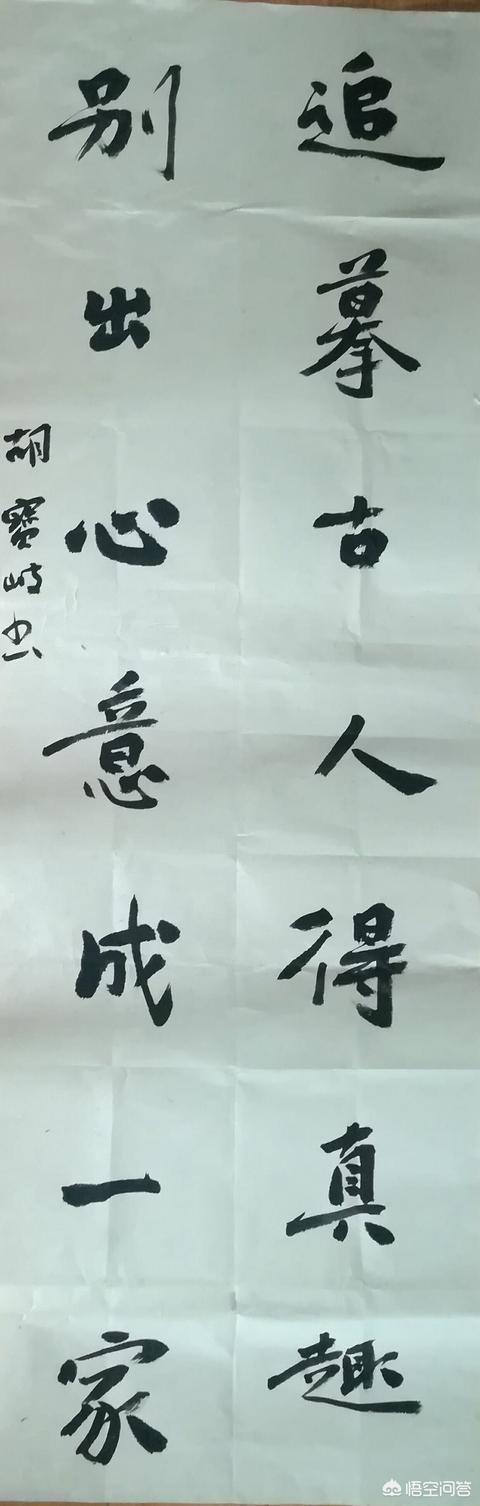 追摹古人得真趣
别出心意成一家
胡寳岐书
悟空问答